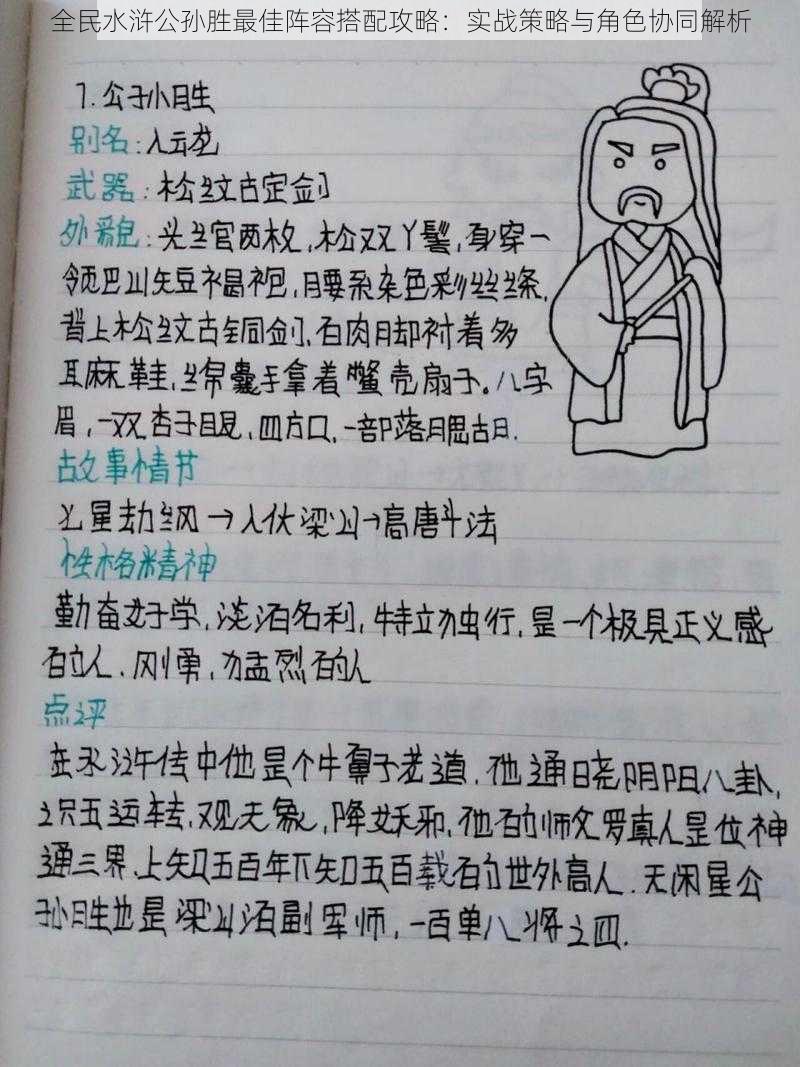 全民水浒公孙胜最佳阵容搭配攻略：实战策略与角色协同解析
7. 公孙胜
别名：入云龙
武器：松纹古定剑
外貌：头绾两枚，松双丫髻，身穿一
领巴山短褐袍，腰系杂色彩丝绦，
背上松纹古铜剑，白肉脚衬着多
耳麻鞋，绵囊手拿着鳖壳扇子。八字
眉，一双杏子眼，四方口，一部落腮胡。
故事情节
七星劫纲→入伙梁山→高唐斗法
性格精神
勤奋好学，淡泊名利，特立独行，是一个极具正义感
的人，刚勇，猛烈的人
点评
在水浒传中他是个牛鼻子老道，他通晓阴阳八卦，
识五运转，观天象，降妖邪，他的师父罗真人是位神
通三界、上知五百年下知五百载的世外高人，天闲星公
孙胜也是梁山泊副军师，一百单八将之四。